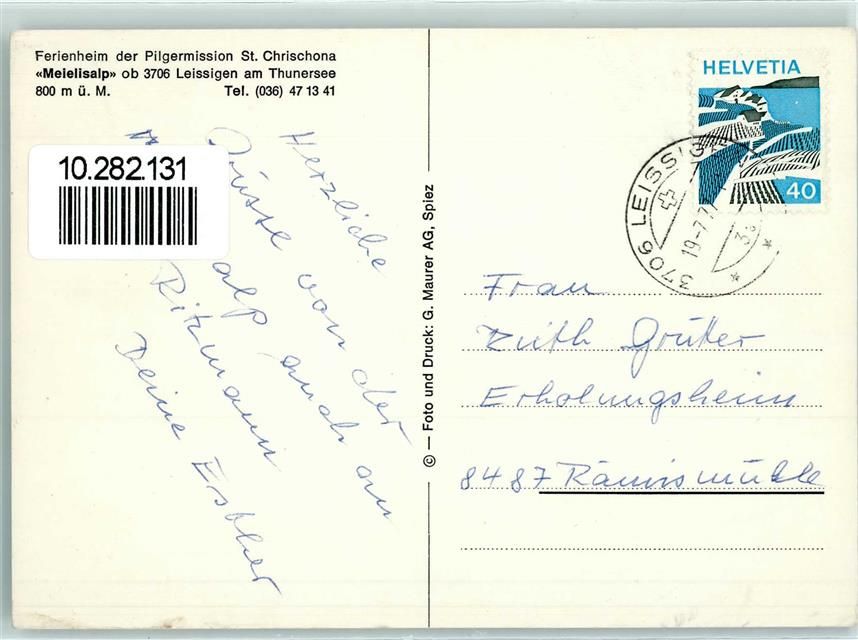 Ferienheim der Pilgermission St. Chrischona
«Meielisalp» ob 3706 Leissigen am Thunersee
800 m ü. M. Tel. (036) 47 13 41
10.282.131
Herzliche
Grüsse von der
alp, auch an
Ritzmann
Deine Esther
© — Foto und Druck: G. Maurer AG, Spiez —
HELVETIA
40
3706 LEISSIG
19-7.7
Frau
Ruth Grütter
Erholungsheim
8487 Rämismühle